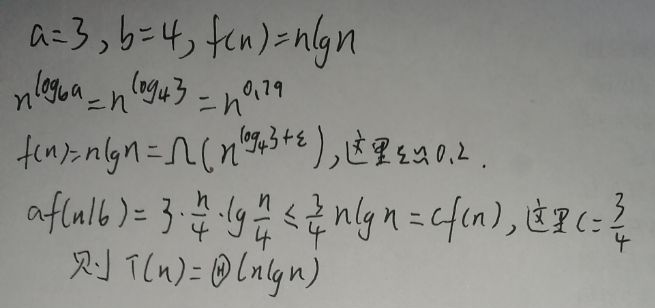 a=3, b=4, f(n)=nlgn
n^{log_b a}=n^{log_4 3}=n^{0.79}
f(n)=nlgn=Ω(n^{log_4 3+ε}),这里ε≈0.2.
af(n/b)=3·\frac{n}{4}·lg\frac{n}{4}≤\frac{3}{4}nlgn=cf(n),这里c=\frac{3}{4}
则T(n)=Θ(nlgn)